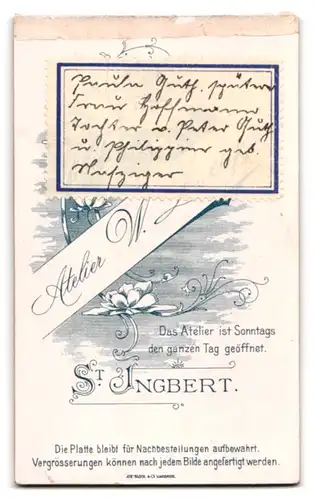 Paula Guth. spätere
Frau Hoffmann
Tochter v. Peter Guth
u. Philippine geb.
Nafziger
Atelier W.
Das Atelier ist Sonntags
den ganzen Tag geöffnet.
ST INGBERT.
Die Platte bleibt für Nachbestellungen aufbewahrt.
Vergrösserungen können nach jedem Bilde angefertigt werden.